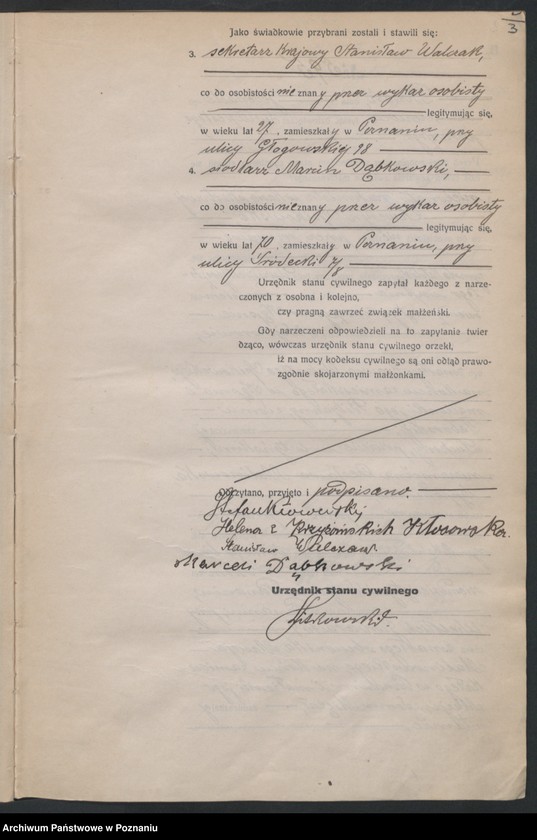 3
Jako świadkowie przybrani zostali i stawili się:
3. sekretarz Krajowy Stanisław Walczak,
co do osobistości nieznany przez wykaz osobisty
legitymując się,
w wieku lat 27, zamieszkały w Poznaniu, przy
ulicy Głogowskiej 98
4. siodlarz Marcin Dąbkowski,
co do osobistości nieznany przez wykaz osobisty
legitymując się,
w wieku lat 70, zamieszkały w Poznaniu, przy
ulicy Śródecki 7/8
Urzędnik stanu cywilnego zapytał każdego z narze-
czonych z osobna i kolejno,
czy pragną zawrzeć związek małżeński.
Gdy narzeczeni odpowiedzieli na to zapytanie twier
dząco, wówczas urzędnik stanu cywilnego orzekł,
iż na mocy kodeksu cywilnego są oni odtąd prawo-
zgodnie skojarzonymi małżonkami.
Odczytano, przyjęto i podpisano.
Helena z Krzyżońskich Kłosowska.
Stanisław Walczak
Marceli Dąbkowski
Urzędnik stanu cywilnego
Archiwum Państwowe w Poznaniu